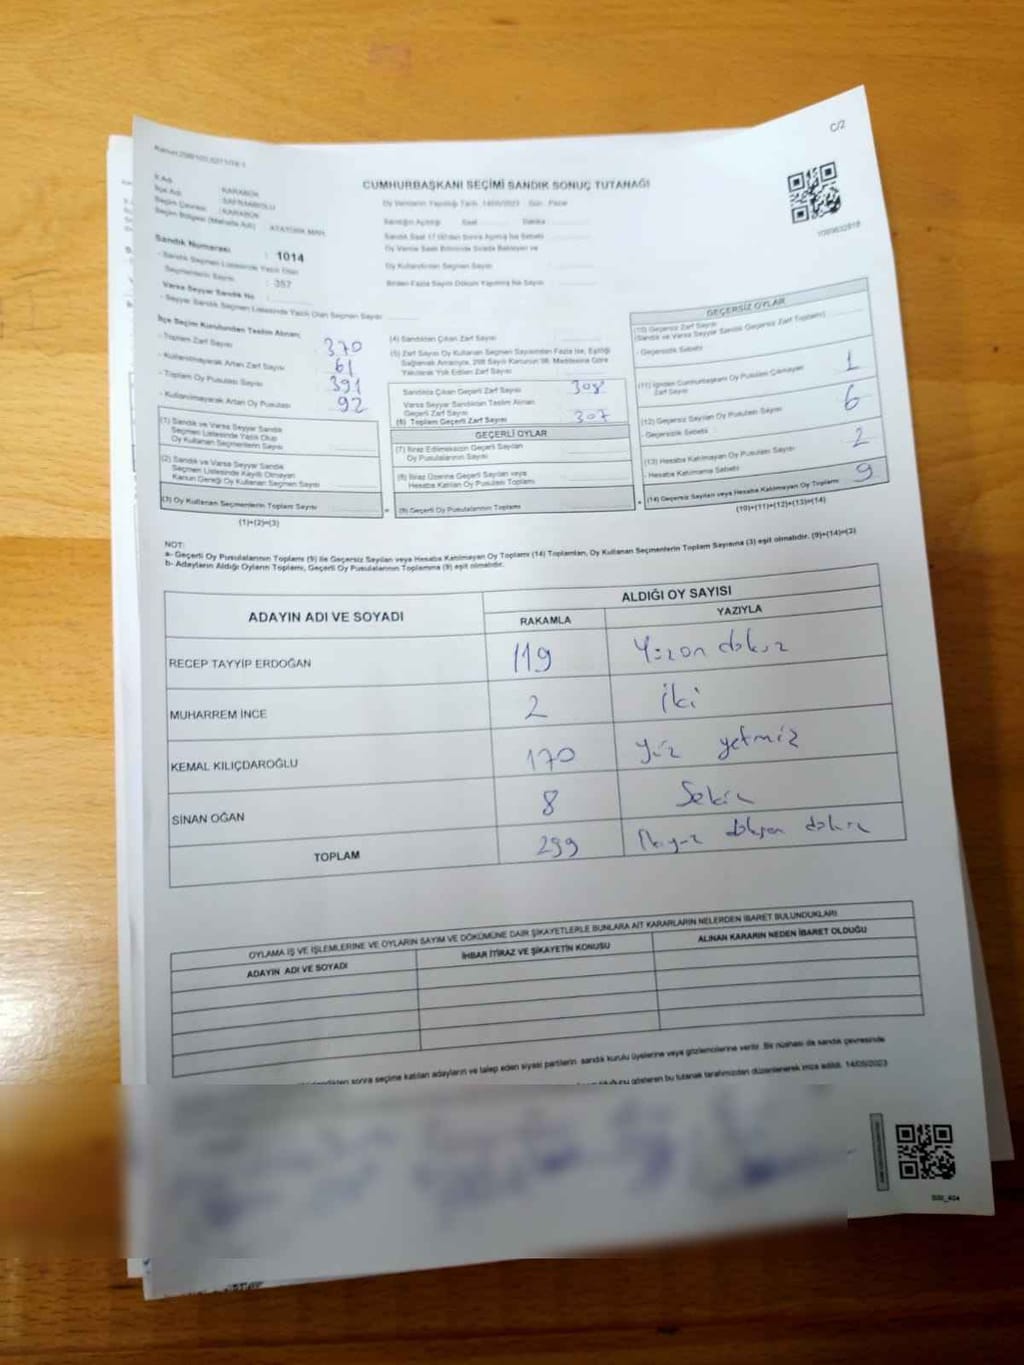 C/2
CUMHURBAŞKANI SEÇİMİ SANDIK SONUÇ TUTANAĞI
Oy Vermenin Yapıldığı Tarih: 14/05/2023 Gün: Pazar
İl Adı : KARABÜK
İlçe Adı : SAFRANBOLU
Seçim Çevresi : KARABÜK
Seçim Bölgesi (Mahalle Adı) : ATATÜRK MAH.
Sandığın Açıldığı Saat Dakika
Sandık Numarası : 1014
- Sandık Seçmen Listesinde Yazılı Olan
Seçmenlerin Sayısı : 357
Oy Kullandırılan Seçmen Sayısı
Varsa Seyyar Sandık No
- Seyyar Sandık Seçmen Listesinde Yazılı Olan Seçmen Sayısı
İlçe Seçim Kurulundan Teslim Alınan;
- Toplam Zarf Sayısı 370
- Kullanılmayarak Artan Zarf Sayısı 61
- Toplam Oy Pusulası Sayısı 391
- Kullanılmayarak Artan Oy Pusulası 92
(1) Sandık ve Varsa Seyyar Sandık
Seçmen Listesinde Yazılı Olup
Oy Kullanan Seçmenlerin Sayısı
(2) Sandık ve Varsa Seyyar Sandık
Seçmen Listesinde Kayıtlı Olmayan
Kanun Gereği Oy Kullanan Seçmen Sayısı
(3) Oy Kullanan Seçmenlerin Toplam Sayısı
(1)+(2)=(3)
(4) Sandıktan Çıkan Zarf Sayısı
(5) Zarf Sayısı Oy Kullanan Seçmen Sayısından Fazla İse, Eşitliği
Sağlamak Amacıyla, 298 Sayılı Kanunun 98. Maddesine Göre
Yakılarak Yok Edilen Zarf Sayısı
Sandıkta Çıkan Geçerli Zarf Sayısı 308
Varsa Seyyar Sandıktan Teslim Alınan
Geçerli Zarf Sayısı
(6) Toplam Geçerli Zarf Sayısı 307
GEÇERLİ OYLAR
(7) İtiraz Edilmeksizin Geçerli Sayılan
Oy Pusulalarının Sayısı
(8) İtiraz Üzerine Geçerli Sayılan veya
Hesaba Katılan Oy Pusulası Toplamı
(9) Geçerli Oy Pusulalarının Toplamı
GEÇERSİZ OYLAR
(10) Geçersiz Zarf Sayısı
(Sandık ve Varsa Seyyar Sandık Geçersiz Zarf Toplamı)
- Geçersizlik Sebebi
(11) İçinden Cumhurbaşkanı Oy Pusulası Çıkmayan
Zarf Sayısı 1
(12) Geçersiz Sayılan Oy Pusulası Sayısı 6
- Geçersizlik Sebebi
(13) Hesaba Katılmayan Oy Pusulası Sayısı 2
- Hesaba Katılmama Sebebi
(14) Geçersiz Sayılan veya Hesaba Katılmayan Oy Toplamı 9
(10)+(11)+(12)+(13)=(14)
NOT:
a- Geçerli Oy Pusulalarının Toplamı (9) ile Geçersiz Sayılan veya Hesaba Katılmayan Oy Toplamı (14) Toplamları, Oy Kullanan Seçmenlerin Toplam Sayısına (3) eşit olmalıdır. (9)+(14)=(3)
b- Adayların Aldığı Oyların Toplamı, Geçerli Oy Pusulalarının Toplamına (9) eşit olmalıdır.
ADAYIN ADI VE SOYADI ALDIĞI OY SAYISI
RAKAMLA YAZIYLA
RECEP TAYYİP ERDOĞAN 119 Yüzon dokuz
MUHARREM İNCE 2 İki
KEMAL KILIÇDAROĞLU 170 Yüz yetmiz
SİNAN OĞAN 8 Sekiz
TOPLAM 299 doksan dokuz
OYLAMA İŞ VE İŞLEMLERİNE VE OYLARIN SAYIM VE DÖKÜMÜNE DAİR ŞİKAYETLERLE BUNLARA AİT KARARLARIN NELERDEN İBARET BULUNDUKLARI
ADAYIN ADI VE SOYADI İHBAR İTİRAZ VE ŞİKAYETİN KONUSU ALINAN KARARIN NEDEN İBARET OLDUĞU
sonra seçime katılan adayların ve talep eden siyasi partilerin sandık kurulu üyelerine veya gözlemcilerine verilir. Bir nüshası da sandık çevresinde
gösteren bu tutanak tarafımızdan düzenlenerek imza edildi. 14/05/2023